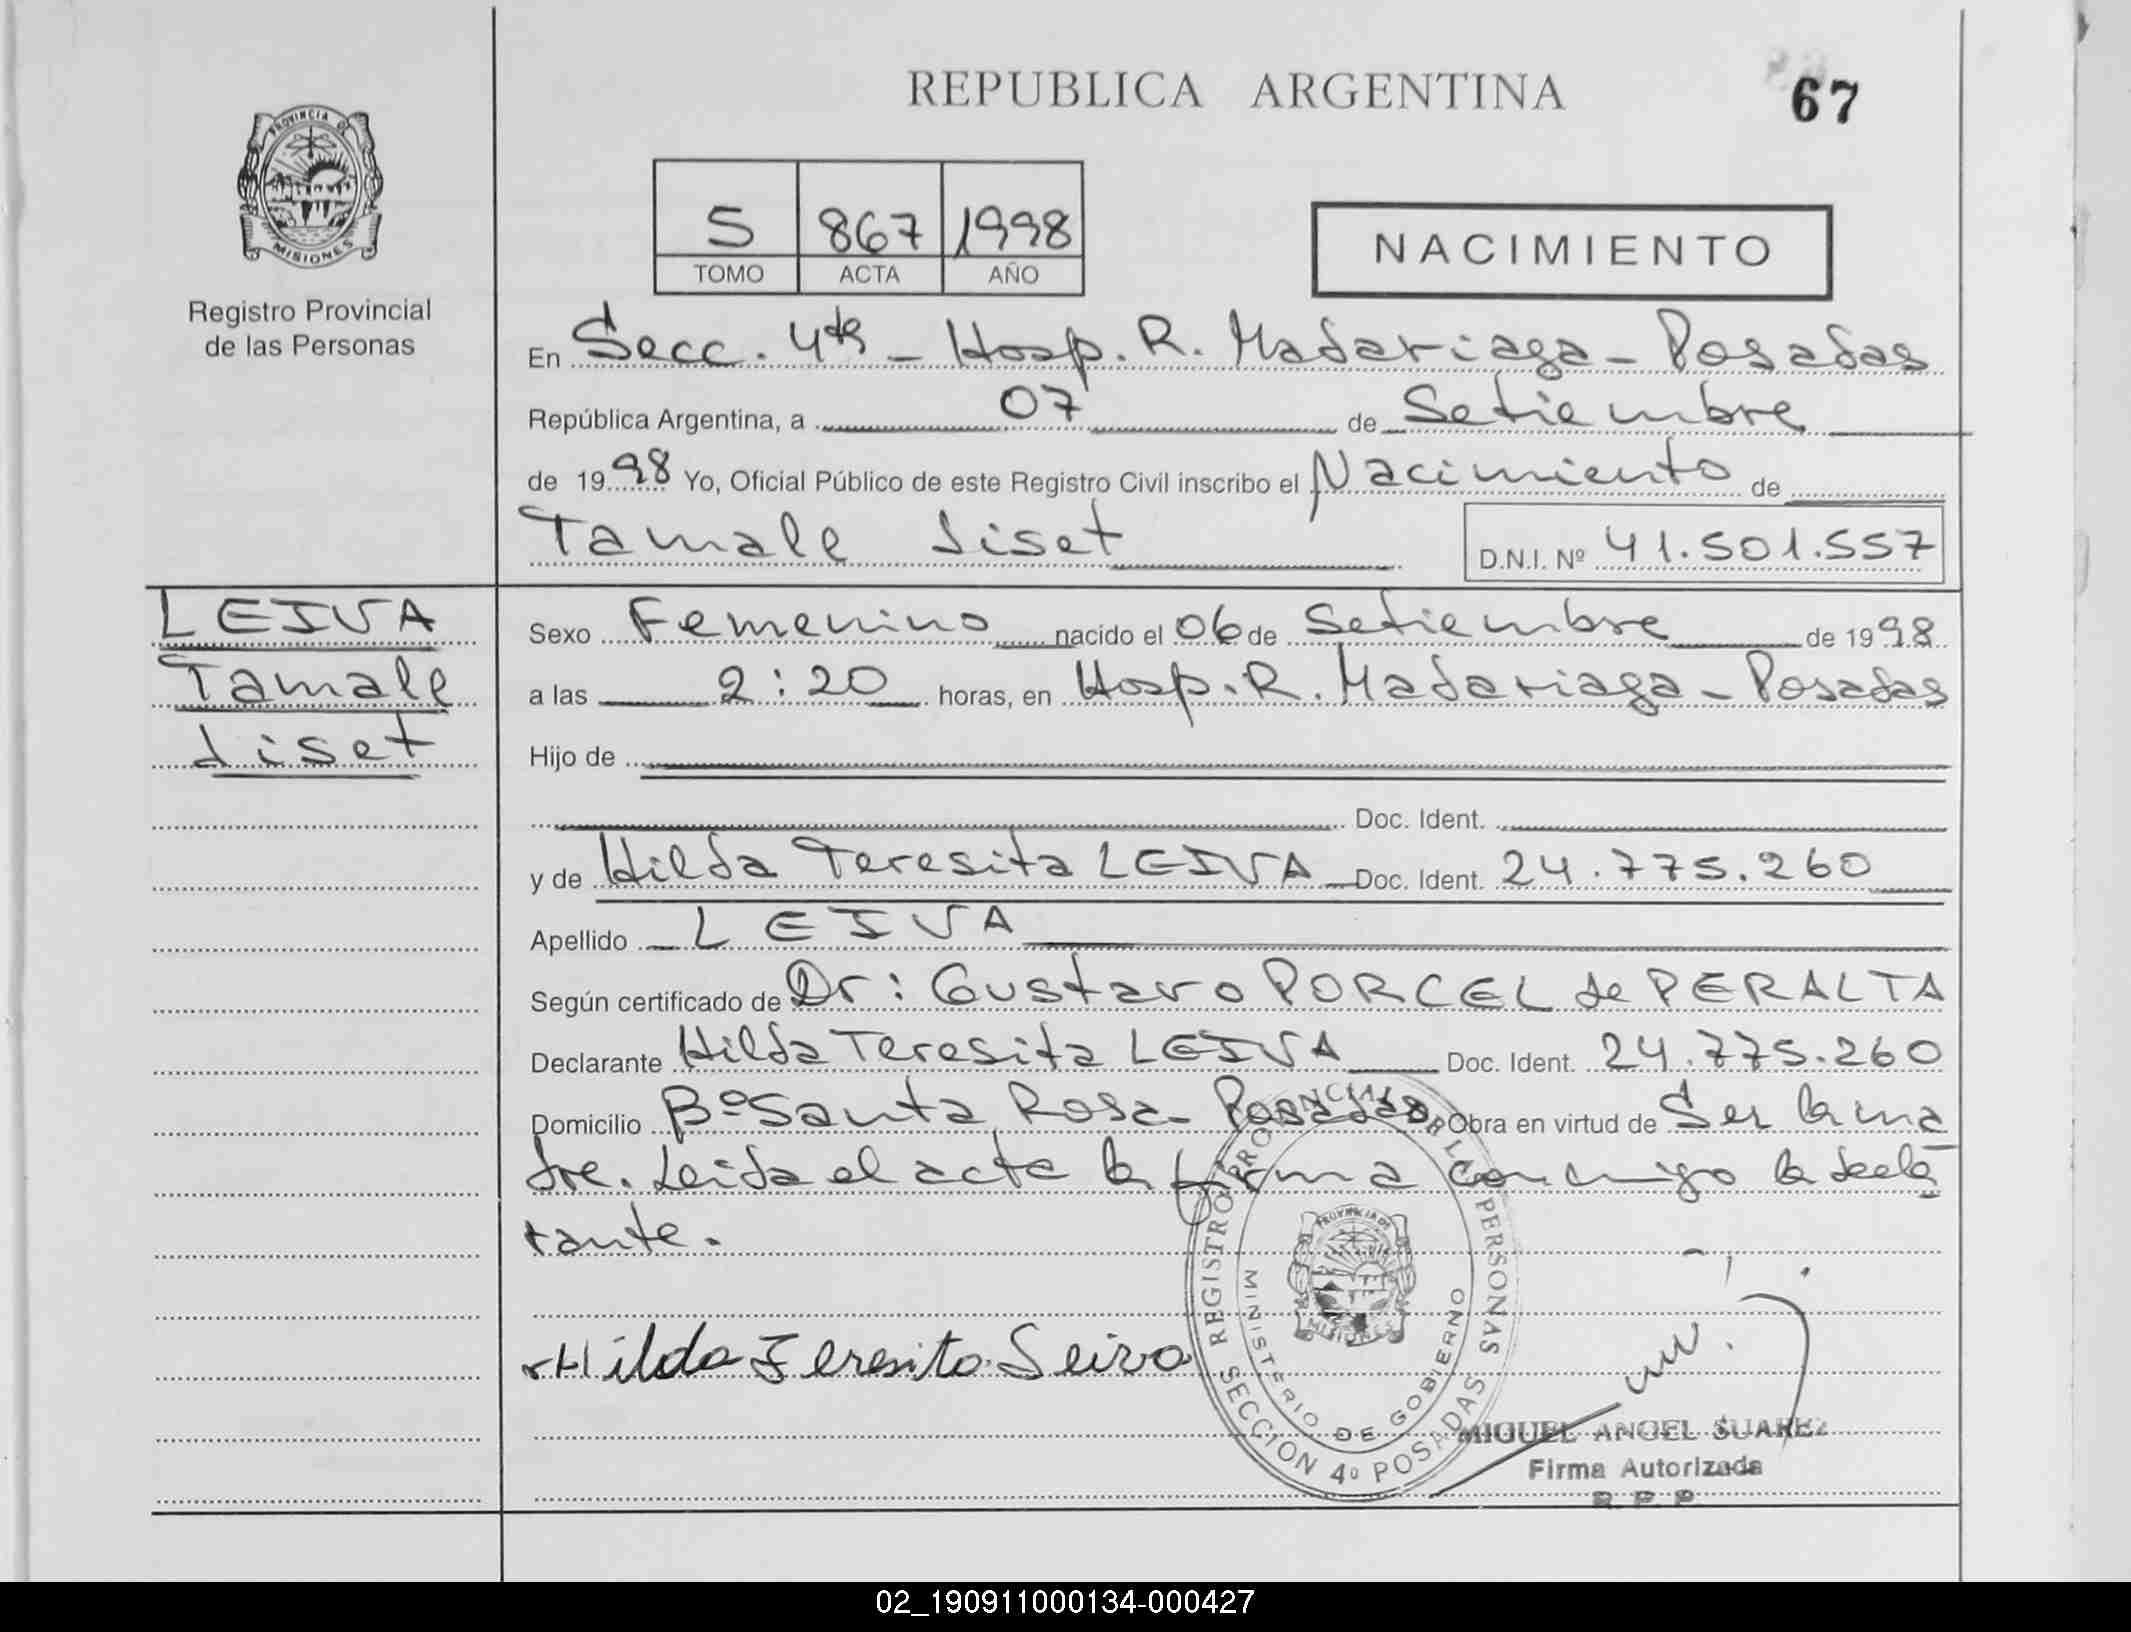 REPUBLICA ARGENTINA
67
PROVINCIA DE
MISIONES
Registro Provincial
de las Personas
5 867 1998
TOMO ACTA AÑO
NACIMIENTO
En Secc. 4ta - Hosp. R. Madariaga - Posadas
República Argentina, a 07 de Setiembre
de 1998 Yo, Oficial Público de este Registro Civil inscribo el Nacimiento de
Tamale Liset
D.N.I. Nº 41.501.557
LEIVA
Tamale
Liset
Sexo Femenino nacido el 06 de Setiembre de 1998
a las 2:20 horas, en Hosp. R. Madariaga - Posadas
Hijo de
Doc. Ident.
y de Hilda Teresita LEIVA Doc. Ident. 24.775.260
Apellido LEIVA
Según certificado de Dr: Gustavo PORCEL de PERALTA
Declarante Hilda Teresita LEIVA Doc. Ident. 24.775.260
Domicilio Bº Santa Rosa - Posadas Obra en virtud de Ser la ma
dre. Leida el acta la firma conmigo la decla
rante.
Hilda Teresita Leiva
REGISTRO PROVINCIAL DE LAS PERSONAS
MINISTERIO DE GOBIERNO
PROVINCIA DE
MISIONES
SECCION 4º POSADAS
MIGUEL ANGEL SUAREZ
Firma Autorizada
R. P. P.
02_190911000134-000427